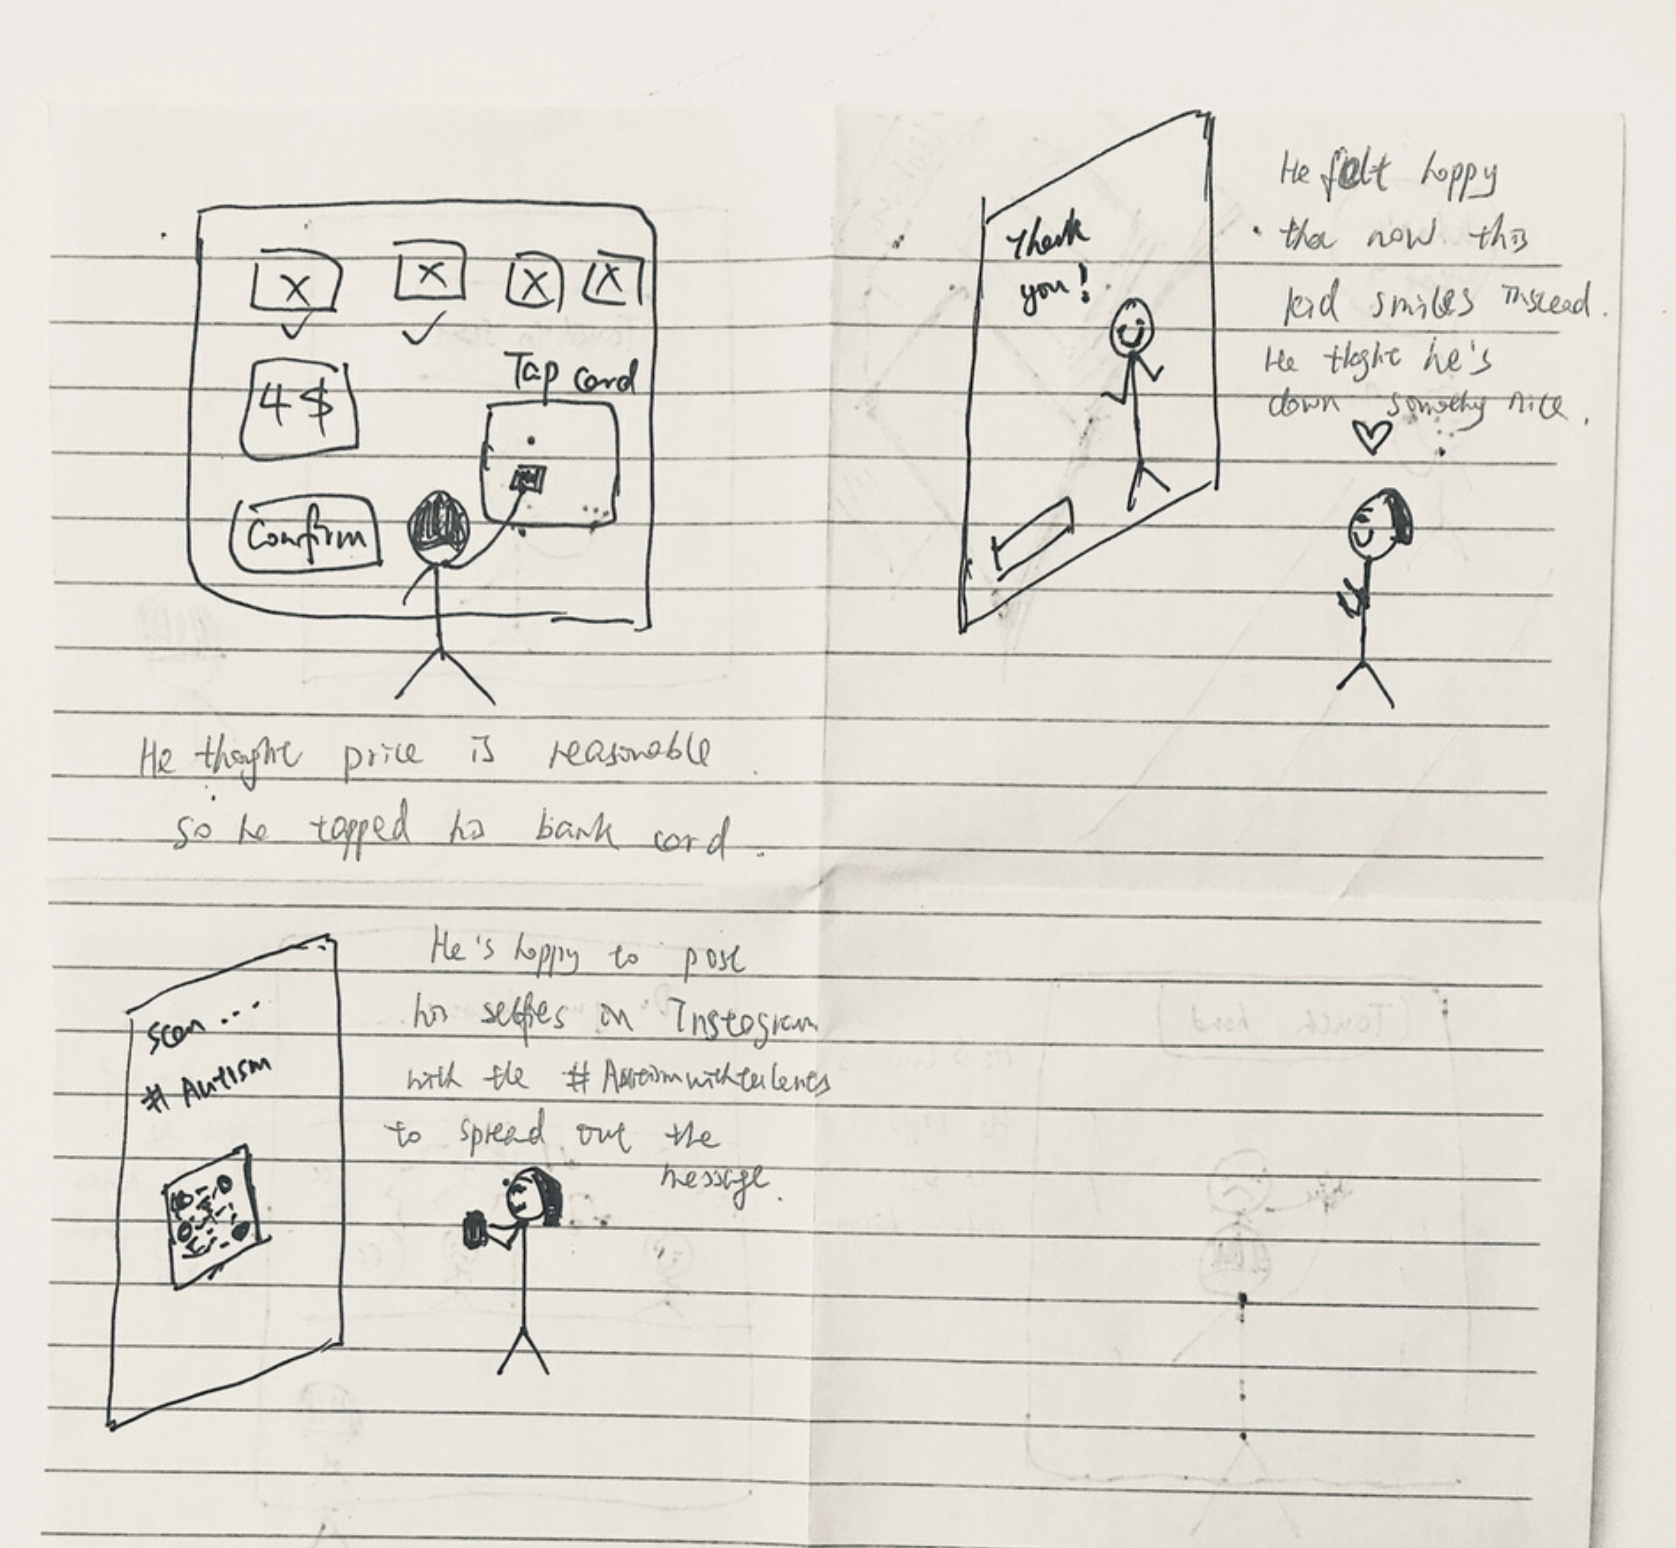 Tap card
4$
Confirm
He thoght price is reasonable.
so he tapped his bank card.
Thank
you!
He felt happy
tha now this
kid smiles instead.
He thght he's
down nice.
scan ...
# Autism
He's happy to post
his selfies on Instagram
with the #
to spread out the
message.
(Touch hand)